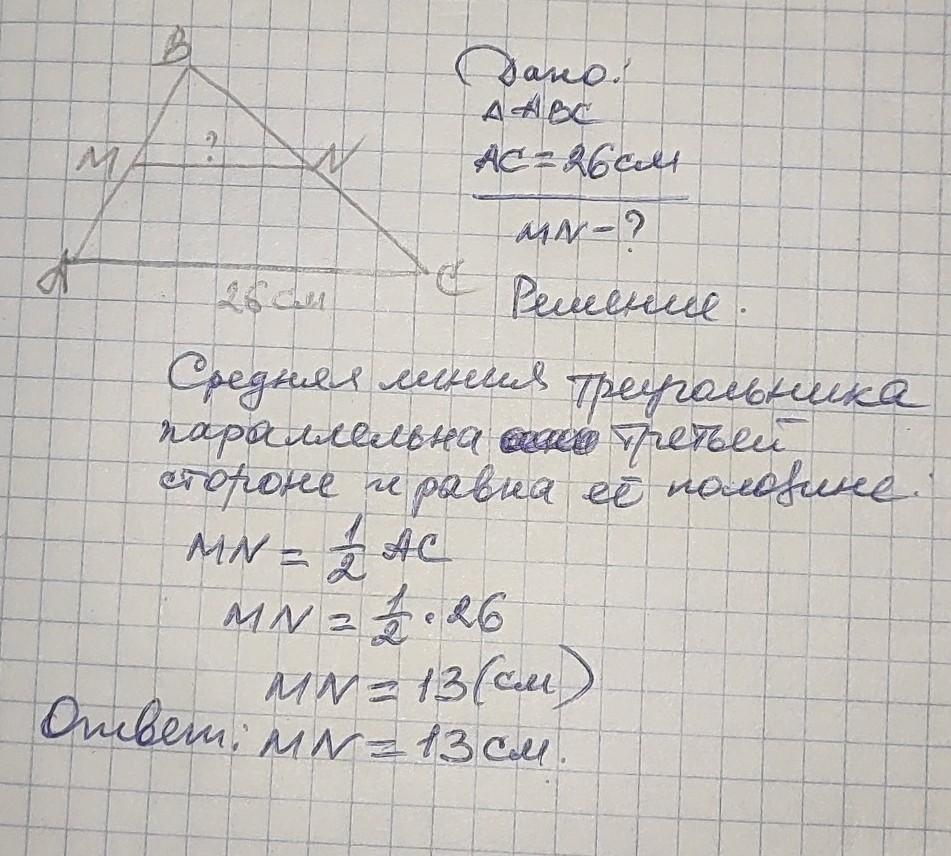 B
M ? N
A C
26 см
Дано:
△ABC
AC = 26 см
MN - ?
Решение.
Средняя линия треугольника
параллельна третьей
стороне и равна её половине.
MN = 1/2 AC
MN = 1/2 · 26
MN = 13 (см)
Ответ: MN = 13 см.